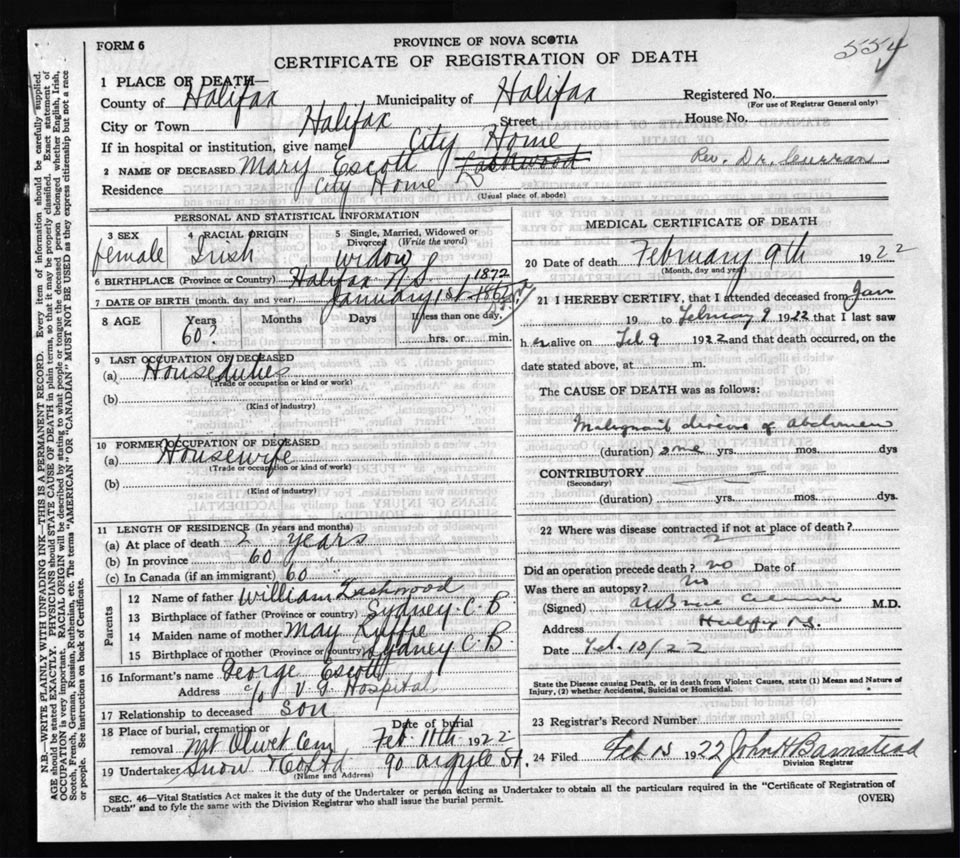 FORM 6
PROVINCE OF NOVA SCOTIA
CERTIFICATE OF REGISTRATION OF DEATH
554
1 PLACE OF DEATH—
County of Halifax Municipality of Halifax Registered No.
(For use of Registrar General only)
City or Town Halifax Street House No.
If in hospital or institution, give name City Home
2 NAME OF DECEASED Mary Escott Rev. Dr. Curran
Residence City Home
(Usual place of abode)
PERSONAL AND STATISTICAL INFORMATION
3 SEX female 4 RACIAL ORIGIN Irish 5 Single, Married, Widowed or Divorced (Write the word) Widow
6 BIRTHPLACE (Province or Country) Halifax N.S.
1872
7 DATE OF BIRTH (month, day and year) January 1st
8 AGE Years 60? Months Days If less than one day, hrs. or min.
9 LAST OCCUPATION OF DECEASED
(a) Houseduties
(Trade or occupation or kind or work)
(b)
(Kind of industry)
10 FORMER OCCUPATION OF DECEASED
(a) Housewife
(Trade or occupation or kind or work)
(b)
(Kind of industry)
11 LENGTH OF RESIDENCE (In years and months)
(a) At place of death 2 years
(b) In province 60 "
(c) In Canada (if an immigrant) 60 "
Parents
12 Name of father William
13 Birthplace of father (Province or country) Sydney C.B
14 Maiden name of mother May
15 Birthplace of mother (Province or country) Sydney C.B.
16 Informant's name George Escott
Address c/o V.G. Hospital,
17 Relationship to deceased Son
18 Place of burial, cremation or removal Mt Olivet Cem Date of burial Feb. 11th 1922
19 Undertaker Snow & Co Ltd 90 Argyle St.
(Name and Address)
MEDICAL CERTIFICATE OF DEATH
20 Date of death February 9th 1922
(Month, day and year)
21 I HEREBY CERTIFY, that I attended deceased from Jan
19 to February 9 1922 that I last saw
h er alive on Feb 9 1922 and that death occurred, on the
date stated above, at m.
The CAUSE OF DEATH was as follows:
Malignant disease of abdomen
(duration) some yrs. mos. dys
CONTRIBUTORY
(Secondary)
(duration) yrs. mos. dys.
22 Where was disease contracted if not at place of death?
Did an operation precede death? no Date of
Was there an autopsy? no
(Signed) M.D.
Address Halifax N.S.
Date Feb. 10/22
State the Disease causing Death, or in death from Violent Causes, state (1) Means and Nature of
Injury, (2) whether Accidental, Suicidal or Homicidal.
23 Registrar's Record Number
24 Filed Feb 13 1922 John H Barnstead
Division Registrar
SEC. 46—Vital Statistics Act makes it the duty of the Undertaker or person acting as Undertaker to obtain all the particulars required in the "Certificate of Registration of
Death" and to fyle the same with the Division Registrar who shall issue the burial permit. (OVER)
N.B.—WRITE PLAINLY WITH UNFADING INK—THIS IS A PERMANENT RECORD. Every item of information should be carefully supplied.
AGE should be stated EXACTLY. PHYSICIANS should STATE CAUSE OF DEATH in plain terms, so that it may be properly classified. Exact statement of
OCCUPATION is very important. RACIAL ORIGIN will be described by stating to what people or tongue the deceased person belonged whether English, Irish,
Scotch, French, German, Russian, Ruthenian, etc. The terms "AMERICAN" OR "CANADIAN" MUST NOT BE USED as they express citizenship but not a race
or people. See instructions on back of Certificate.